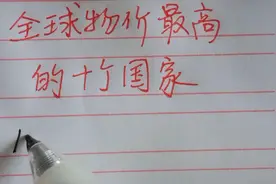 全球物价最高
的十个国家
1